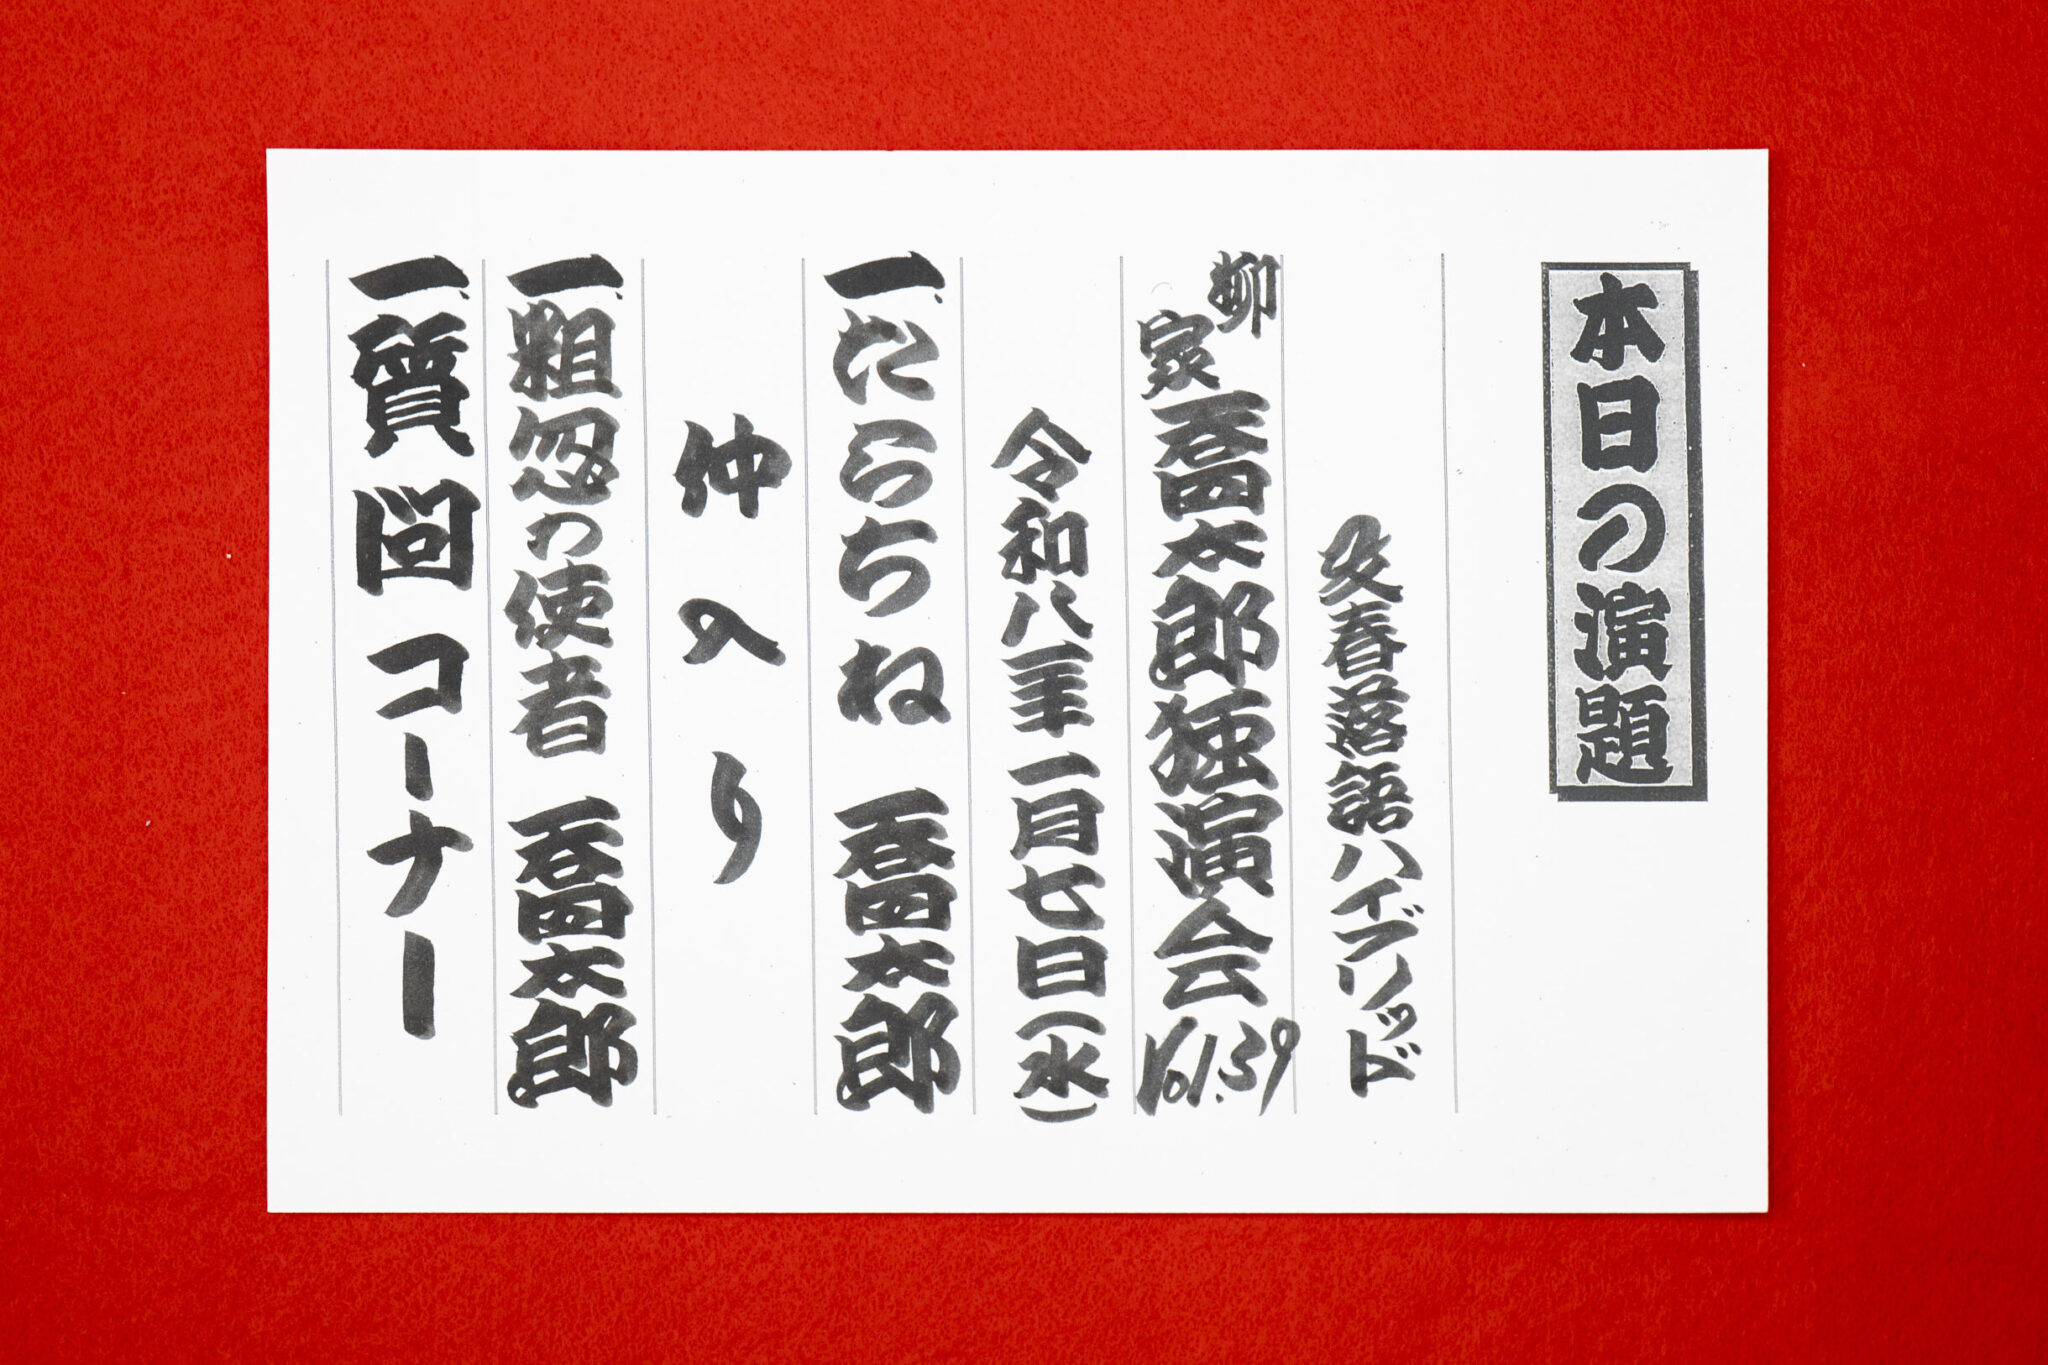 本日の演題
文春落語ハイブリッド
柳家喬太郎独演会 Vol.39
令和八年一月七日(水)
一、たらちね 喬太郎
仲入り
一、粗忽の使者 喬太郎
一、質問コーナー